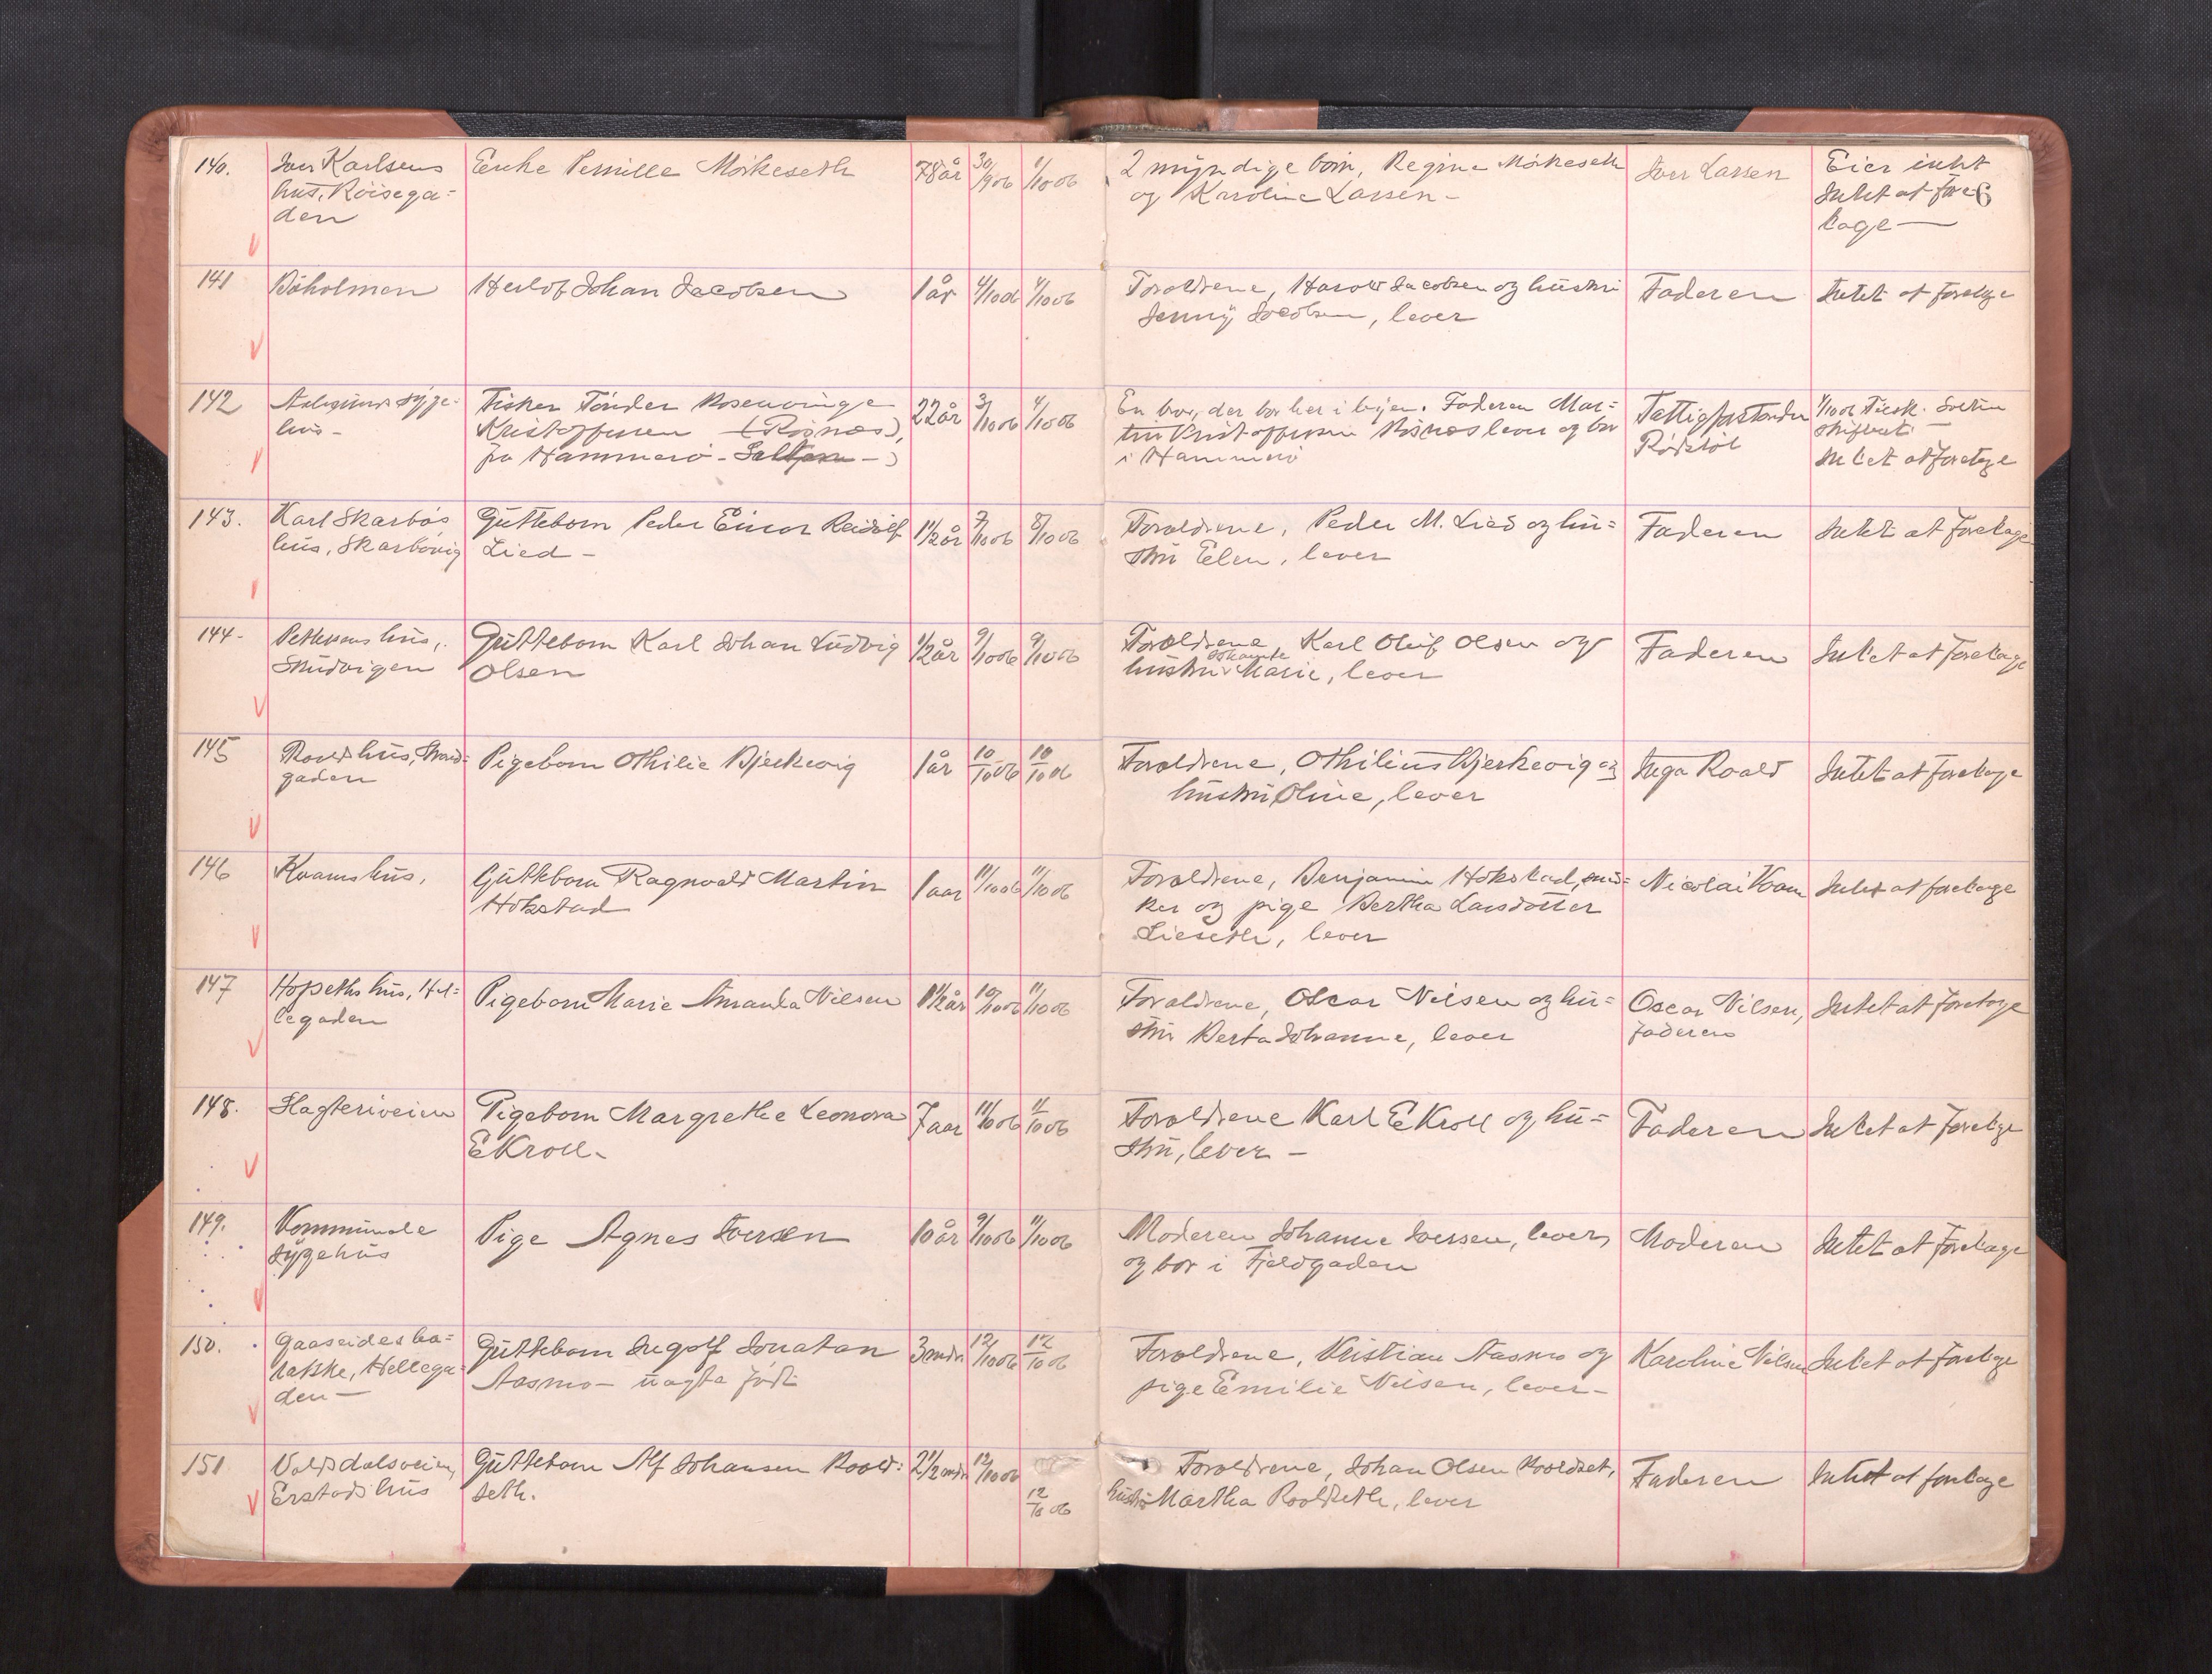 140. Iver Karlsens Enke Pernille Mørkeseth 78 år 30/9 06 1/10 06 2 myndige børn, Regine Mørkeseth Iver Larsen Eier intet
hus, Røisega= og Karoline Larsen - Intet at fore=
den tage —
141 Bøholmen Herlof Johan Jacobsen 1 år 4/10 06 4/10 06 Forældrene, Harold Jacobsen og hustru Faderen Intet at foretage
Jenny Jacobsen, lever
142 Aalesunds syge= Fisker Tønder Rosenvinge 22 år 3/10 06 4/10 06 En bror, der bor her i byen. Faderen Mar= Fattigforstander 4/10 06 Tilsk. Salten
hus - Kristoffersen (Risnæs), tin Kristoffersen Risnæs lever og bor Rødstøl skifteret. —
fra Hammerø - Salten - i Hammerø Intet at foretage
143. Karl Skarbøs Guttebarn Peder Einar Reidulf 1 1/2 år 7/10 06 8/10 06 Forældrene, Peder M. Lied og hu= Faderen Intet at foretage
hus, Skarbøvig Lied - stru Elen, lever
144 - Pettersens hus, Guttebarn Karl Johan Ludvig 1/2 år 9/10 06 9/10 06 Forældrene Karl Oluf Olsen og Faderen Intet at foretage
Skudvigen Olsen hustru Marie, lever
145 Roalds hus, Strand= Pigebarn Othilie Bjerkevig 1 år 10/10 06 10/10 06 Forældrene, Othilius Bjerkevig og Inga Roald Intet at foretage
gaden hustru Oline, lever
146 Kvams hus, Guttebarn Ragnvald Martin 1 aar 11/10 06 11/10 06 Forældrene, Benjamin Hokstad, sned= Nicolai Kvam Intet at foretage
Hokstad ker og pige Bertha Larsdotter
Lieseth, lever
147 Hopseths hus, Hel= Pigebarn Marie Amanda Nilsen 1 1/2 år 10/10 06 11/10 06 Forældrene, Oscar Nilsen og hu= Oscar Nilsen, Intet at foretage
legaden stru Berta Johanne, lever faderen
148. Slagteriveien Pigebarn Margrethe Leonora 7 aar 11/10 06 11/10 06 Forældrene Karl Ekroll og hu= Faderen Intet at foretage
Ekroll - stru, lever -
149. Kommunale Pige Agnes Iversen 10 år 9/10 06 11/10 06 Moderen Johanne Iversen, lever, Moderen Intet at foretage
sygehus og bor i Fjeldgaden
150. Gaaseides ba= Guttebarn Ingolf Jonatan 3 mdr 12/10 06 12/10 06 Forældrene, Kristian Aasmo og Karoline Nilsen Intet at foretage
rakke, Hellega= Aasmo - uægte født pige Emilie Nilsen, lever -
den —
151 Voldsdalsveien, Guttebarn Alf Johansen Roald= 2 1/2 mdr 12/10 06 12/10 06 Forældrene, Johan Olsen Roaldset, Faderen Intet at foretage
Erstads hus seth. hustru Martha Roaldseth, lever